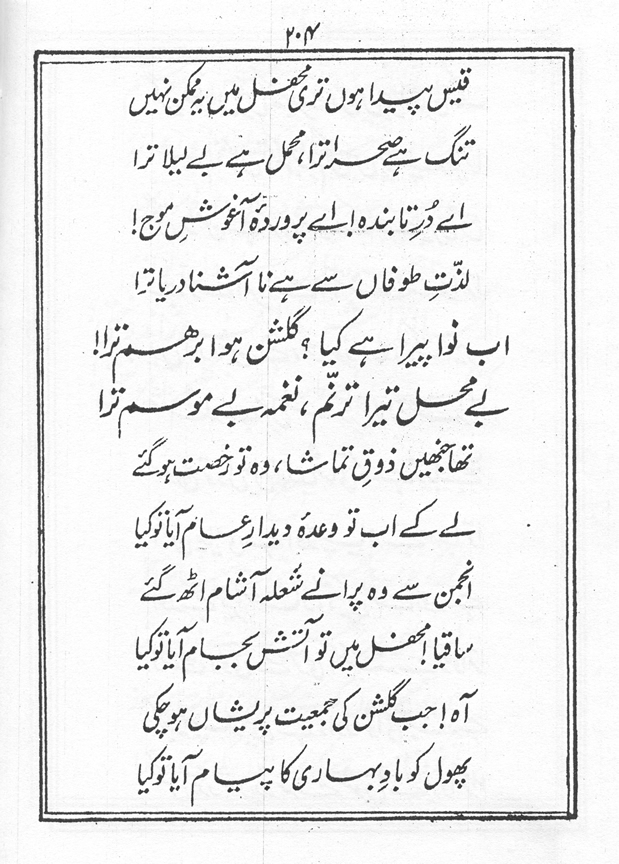 ۲۰۴
قیس پیدا ہوں تری محفل میں یہ ممکن نہیں
تنگ ہے صحرا ترا، محمل ہے بے لیلا ترا
اے دُرِ تابندہ! اے پروردۂ آغوشِ موج!
لذّتِ طوفاں سے ہے ناآشنا دریا ترا
اب نوا پیرا ہے کیا؟ گلشن ہوا برہم ترا!
بے محل تیرا ترنّم، نغمہ بے موسم ترا
تھا جنھیں ذوقِ تماشا، وہ تو رخصت ہو گئے
لے کے اب تو وعدۂ دیدارِ عام آیا تو کیا
انجمن سے وہ پرانے شعلہ آشام اٹھ گئے
ساقیا! محفل میں تو آتش بجام آیا تو کیا
آہ! جب گلشن کی جمعیت پریشاں ہو چکی
پھول کو بادِ بہاری کا پیام آیا تو کیا